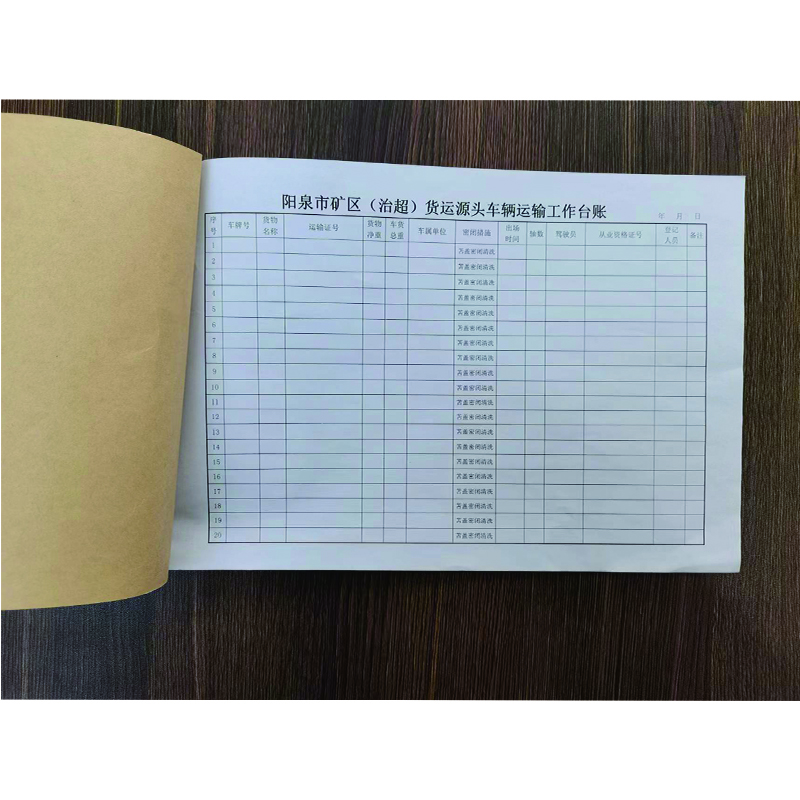 阳泉市矿区（治超）货运源头车辆运输工作台账
年 月 日
序号 车牌号 货物名称 运输证号 货物净重 车货总重 车属单位 密闭措施 出场时间 轴数 驾驶员 从业资格证号 登记人员 备注
1 苫盖密闭清洗
2 苫盖密闭清洗
3 苫盖密闭清洗
4 苫盖密闭清洗
5 苫盖密闭清洗
6 苫盖密闭清洗
7 苫盖密闭清洗
8 苫盖密闭清洗
9 苫盖密闭清洗
10 苫盖密闭清洗
11 苫盖密闭清洗
12 苫盖密闭清洗
13 苫盖密闭清洗
14 苫盖密闭清洗
15 苫盖密闭清洗
16 苫盖密闭清洗
17 苫盖密闭清洗
18 苫盖密闭清洗
19 苫盖密闭清洗
20 苫盖密闭清洗